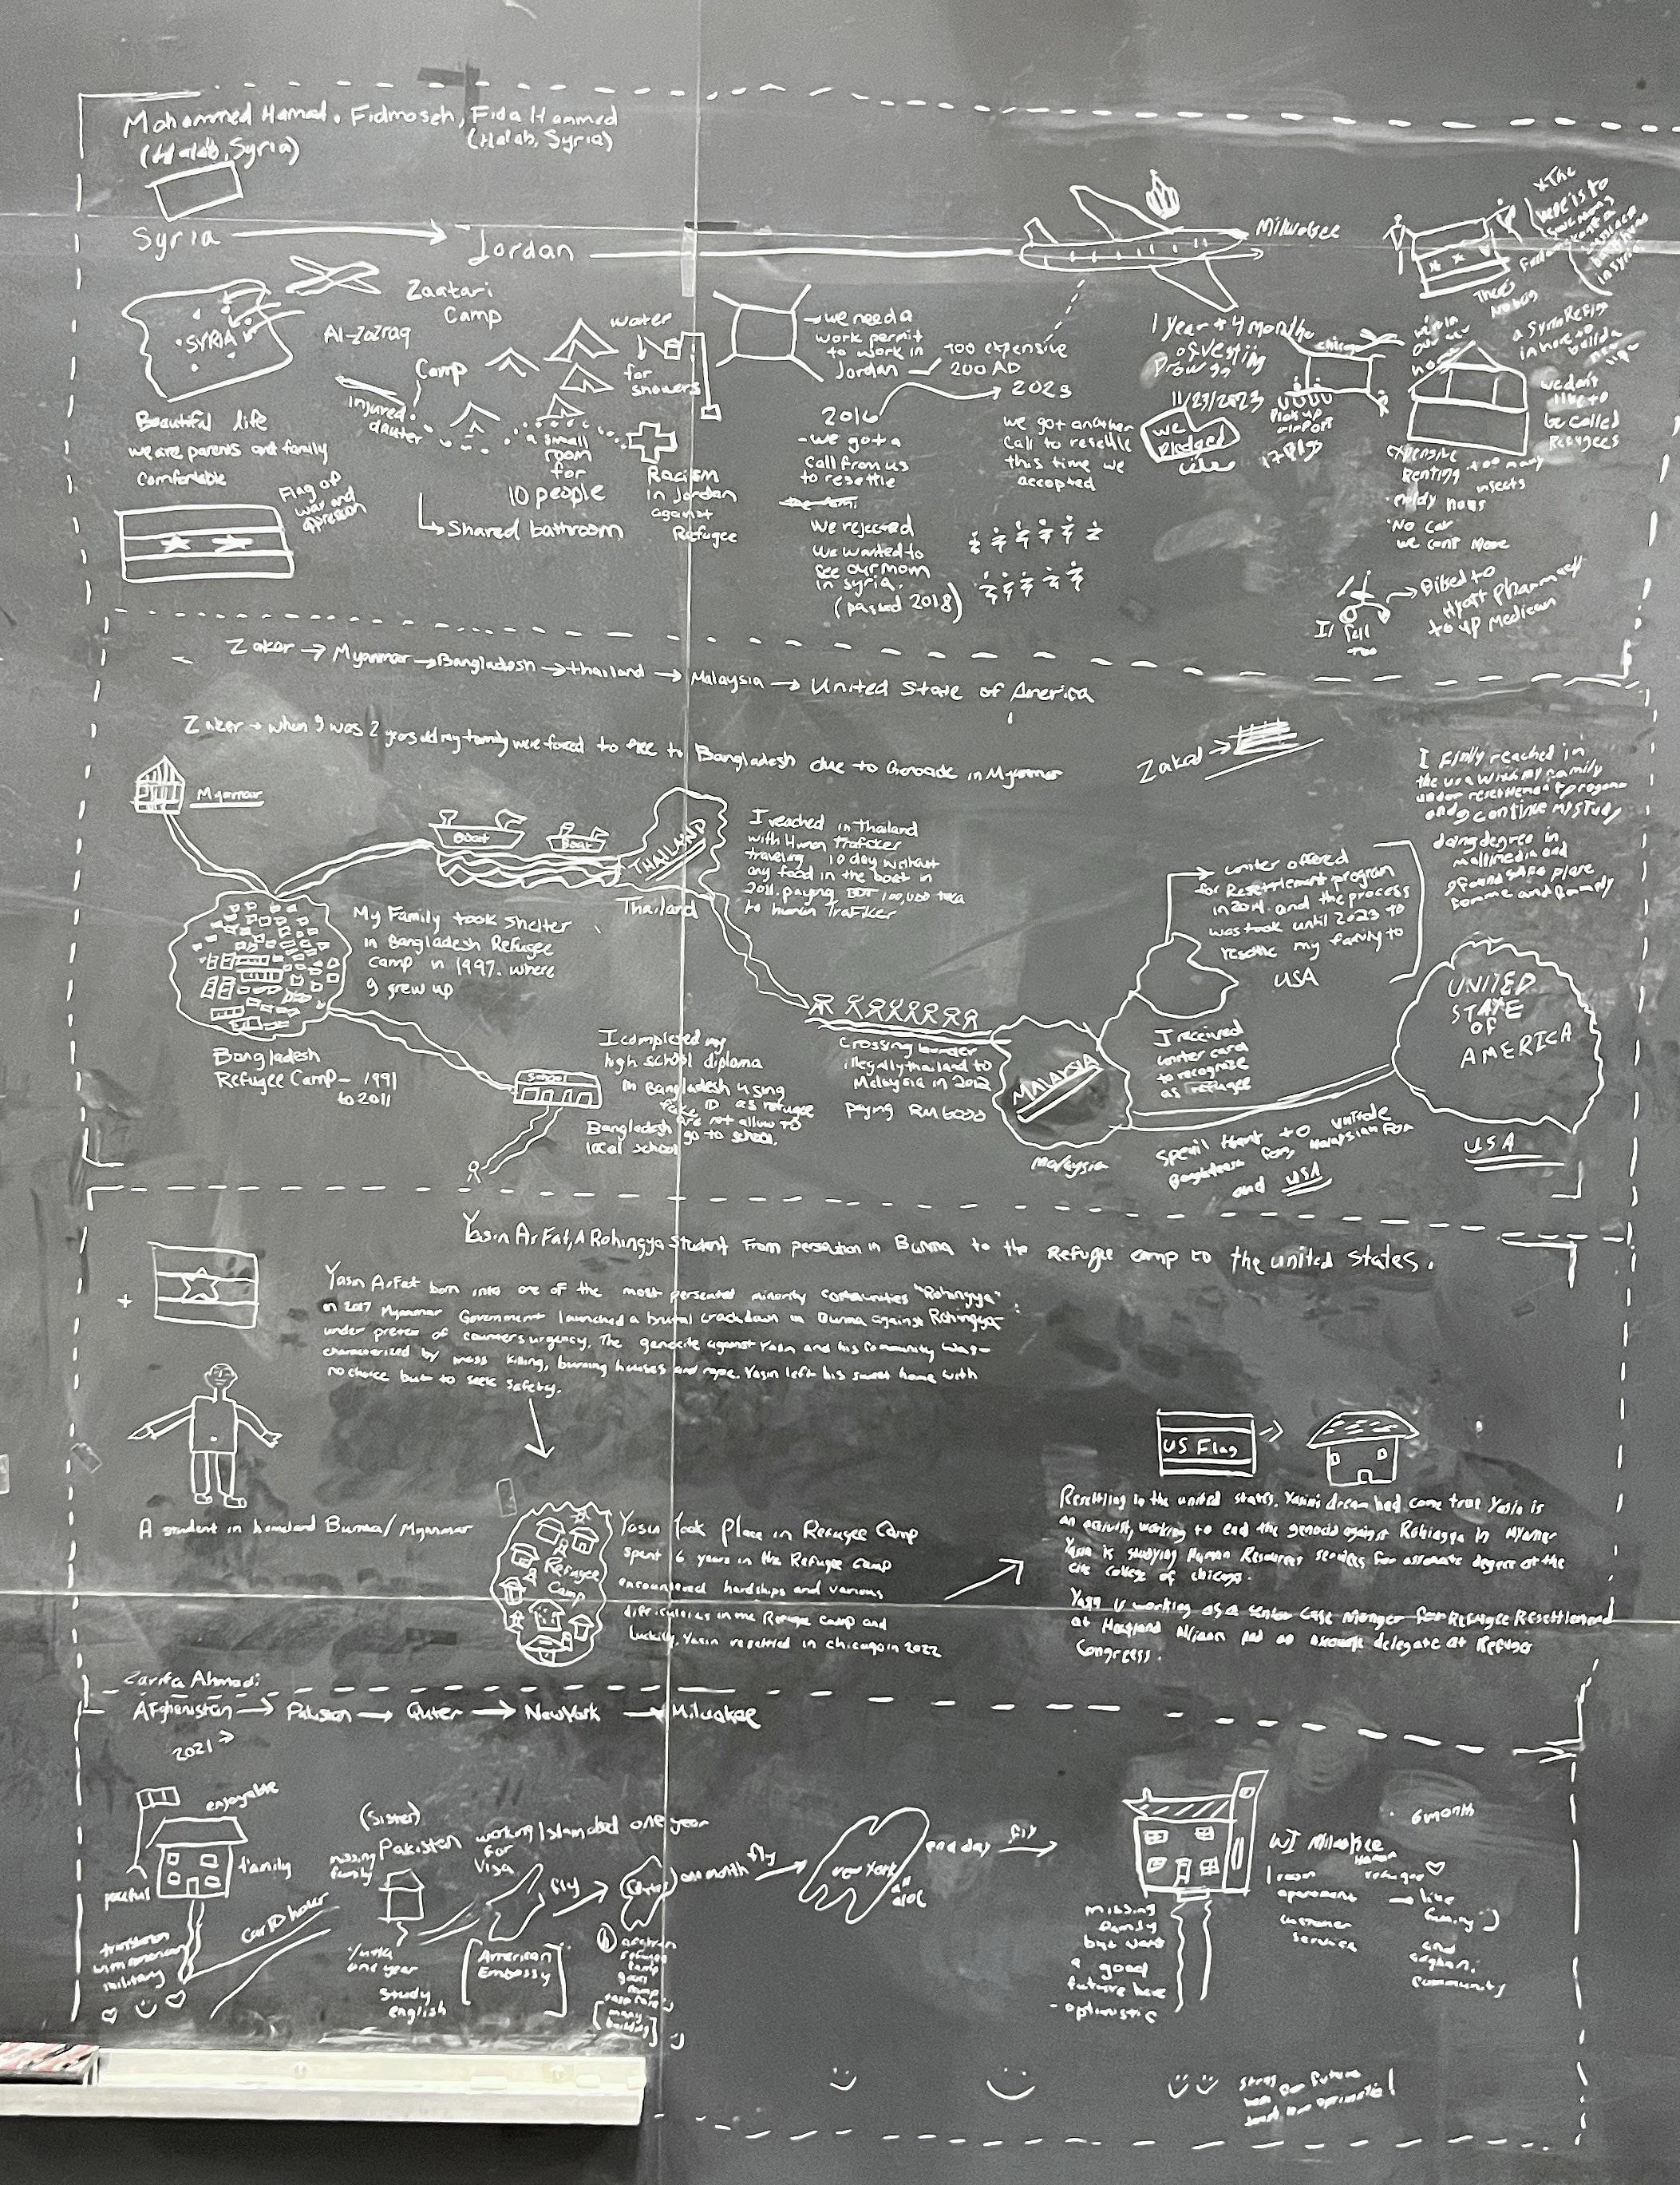 Mohammed Hamad. Fidmoseh, Fida Hammed
(Halab, Syria)
(Halab, Syria)
Syria
Jordan
Milwakee
SYRIA
Al-Zazraq
Zaatari
Camp
Camp
water
for
showers
Injured
dauter
a small
room
for
10 people
Shared bathroom
Racism
in Jordan
against
Refugee
Beautiful life
we are parents and family
Comfortable
Flag of
war and
we need a
work permit
to work in
Jordan
too expensive
200 AD
2016
2023
- we got a
call from us
to resettle
we rejected
we wanted to
see our mom
in syria.
(passed 2018)
we got another
call to resettle
this time we
accepted
1 year + 4 months
of vesting
11/23/2023
we
Pledged
chicago
Pick up
airport
we don't
like to
be called
Refugees
expensive
Renting
too many
insects
moldy hous
No car
we cant move
Biked to
Hyatt Pharmacy
Zaker → Myanmar → Bangladesh → thailand → Malaysia → United State of America
Zaker → when I was 2 years old my family were forced to flee to Bangladesh due to Genocide in Myanmar
Zaker →
Myanmar
Boat
Boat
THAILAND
Thailand
I reached in Thailand
with Human Trafcker
traveling 10 day without
any food in the boat in
2011. paying BDT 100,000 taka
to human Trafiker
My Family took shelter
in Bangladesh Refugee
camp in 1997. where
I grew up
Bangladesh
Refugee Camp - 1991
to 2011
School
I completed my
high school diploma
in Bangladesh using
fake ID as refugee
are not allow to
go to school.
Bangladesh
local school
Crossing border
illegally thailand to
Malaysia in 2012
paying RM 6000
MALAYSIA
Malaysia
I received
unher card
to recognize
as refugee
unher offered
for Resettlement program
in 2014. and the process
was took until 2023 to
resettle my family to
USA
I finly reached in
the usa with my family
under resettlement program
and I continue my study
doing degree in
multimedia and
I found safe place
for me and family
UNITED
STATE
OF
AMERICA
USA
and USA
Yasin Ar Fat, A Rohingya student From persecution in Burma to the Refugee camp to the united states.
Yasin ArFat born into one of the most persecuted minority communities "Rohingya"
in 2017 Myanmar Government launched a brutal crackdown in Burma against Rohingya
under pretex of countersurgency. The genocite against Yasin and his community was-
characterized by mass killing, burning houses and rape. Yasin left his sweet home with
no choice but to seek safety.
A student in homeland Burma/Myanmar
Refugee
Camp
Yasin Took Place in Refugee Camp
spent 6 years in the Refugee camp
encountered hardships and various
difficulties in the Refugee Camp and
Luckily, Yasin resettled in chicago in 2022
US Flag
Resettling in the united states. Yasin's dream had come true Yasin is
an activist, working to end the genocid against Rohingya in Myanmar
Yasin is studying Human Resources services for assosate degree at the
city college of chicago.
Yasin is working as a senior case Manger for Refugee Resettlement
at Heartland Alliance and as delegate at Refugee
Congress.
Zarifa Ahmadi:
Afghanistan → Pakistan → Quter → New York → Milwakee
2021 →
enjoyable
family
peaceful
translation
w/american
military
car 10 hour
(Sister)
Pakistan
missing
family
one year
Study
english
working
for
Visa
Islamabad one year
American
Embassy
fly
one month
fly
refugee
camp
many
building
new York
one day
fly
WI Milwakee
6 month
1 room
apartment
customer
service
like
family :)
and
afghani
community
missing
family
but want
a good
future here
- optimistic